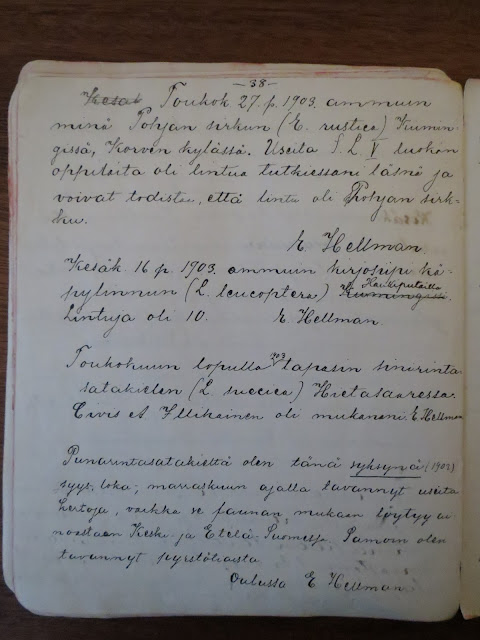 -38-
Kesäk Toukok 27. p. 1903. ammuin
minä Pohjan sirkun (E. rustica) Kiimin-
gissä, Korven kylässä. Useita S. L. V luokan
oppilaita oli lintua tutkiessani läsnä ja
voivat todistaa, että lintu oli Pohjan sirk-
ku.
E Hellman
Kesäk 16 p. 1903. ammuin kirjosiipi kä-
pylinnun (L. leucoptera) Kiimingissä Haukiputailla.
Lintuja oli 10. E Hellman.
Toukokuun lopulla 903 tapasin sinirinta
satakielen (L. suecica) Hietasaaressa.
Civis A Ylikainen oli mukanani. E Hellman
Punarintasatakieltä olen tänä syksynä (1903)
syys, loka, marraskuun ajalla tavannyt useita
kertoja, vaikka se faunan mukaan löytyy ai
noastaan Keski- ja Etelä-Suomessa. Samoin olen
tavannyt pyrstötiaista
Oulussa E Hellman